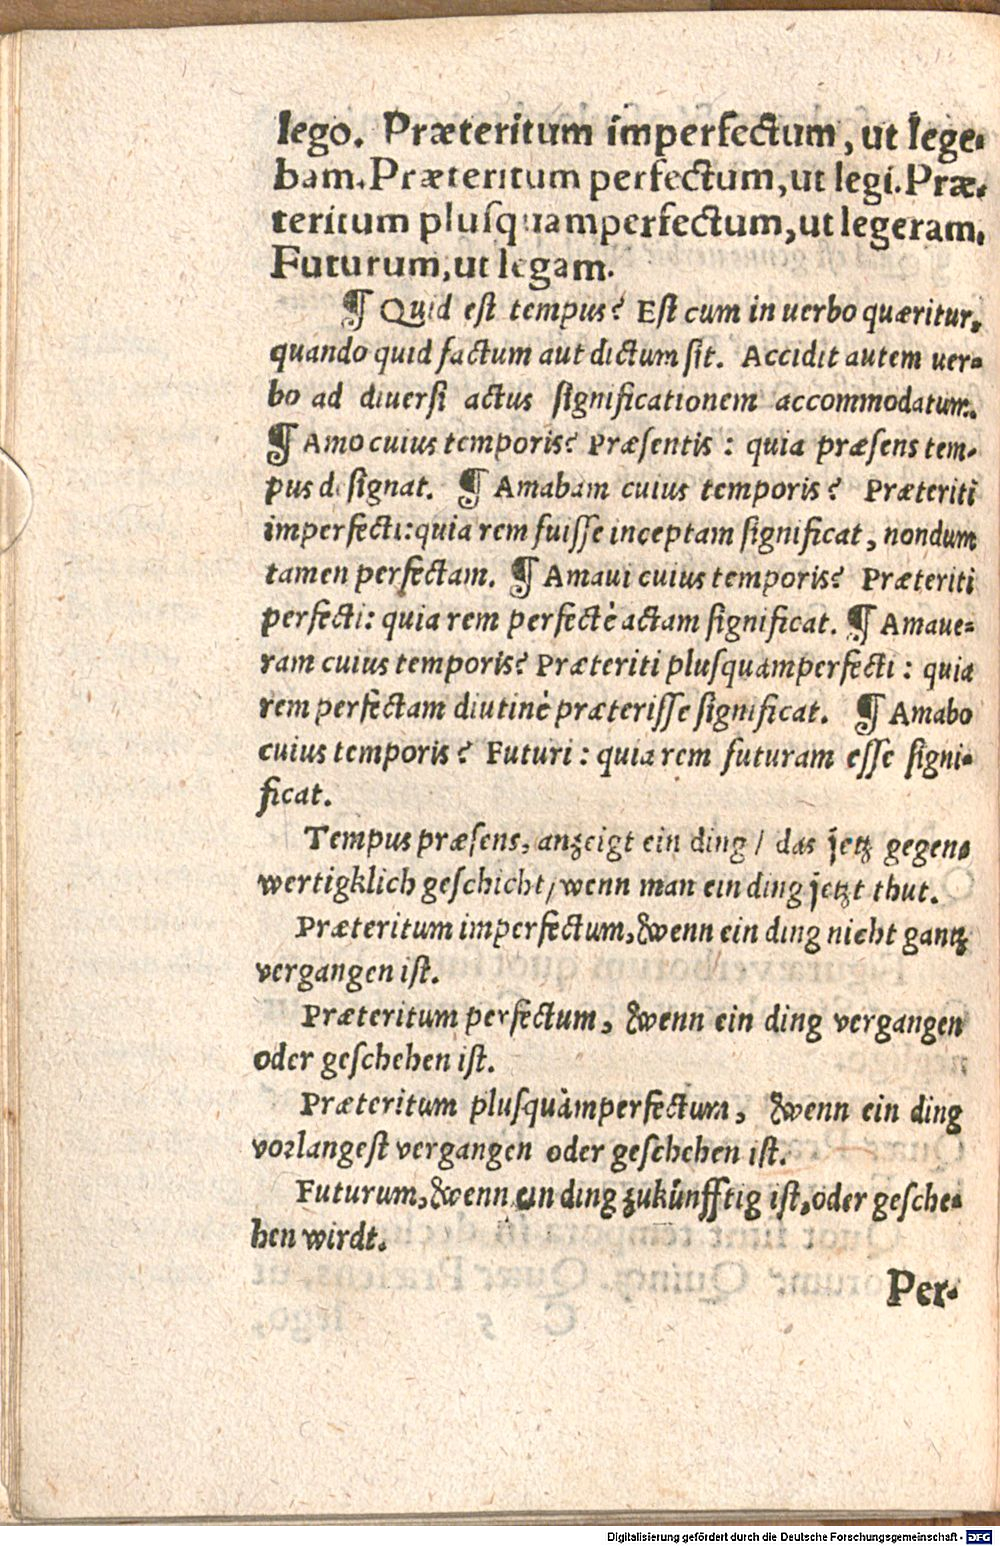 lego. Præteritum imperfectum, ut lege-
bam. Præteritum perfectum, ut legi. Præ-
teritum pluſquamperfectum, ut legeram.
Futurum, ut legam.
¶ Quid eſt tempus? Eſt cum in uerbo quæritur,
quando quid factum aut dictum ſit. Accidit autem uer-
bo ad diuerſi actus ſignificationem accommodatum.
¶ Amo cuius temporis? Præſentis: quia præſens tem-
pus deſignat. ¶ Amabam cuius temporis? Præteriti
imperfecti: quia rem fuiſſe inceptam ſignificat, nondum
tamen perfectam. ¶ Amaui cuius temporis? Præteriti
perfecti: quia rem perfectè actam ſignificat. ¶ Amaue-
ram cuius temporis? Præteriti pluſquàmperfecti: quia
rem perfectam diutinè præteriſſe ſignificat. ¶ Amabo
cuius temporis? Futuri: quia rem futuram eſſe ſigni-
ficat.
Tempus præſens, anzeigt ein ding / das jetz gegen-
wertigklich geſchicht / wenn man ein ding jetzt thut.
Præteritum imperfectum, & wenn ein ding nicht gantz
vergangen iſt.
Præteritum perfectum, & wenn ein ding vergangen
oder geſchehen iſt.
Præteritum pluſquàmperfectum, & wenn ein ding
vorlangeſt vergangen oder geſchehen iſt.
Futurum, & wenn ein ding zukünfftig iſt, oder geſche-
hen wirdt.
Per-
Digitalisierung gefördert durch die Deutsche Forschungsgemeinschaft - DFG